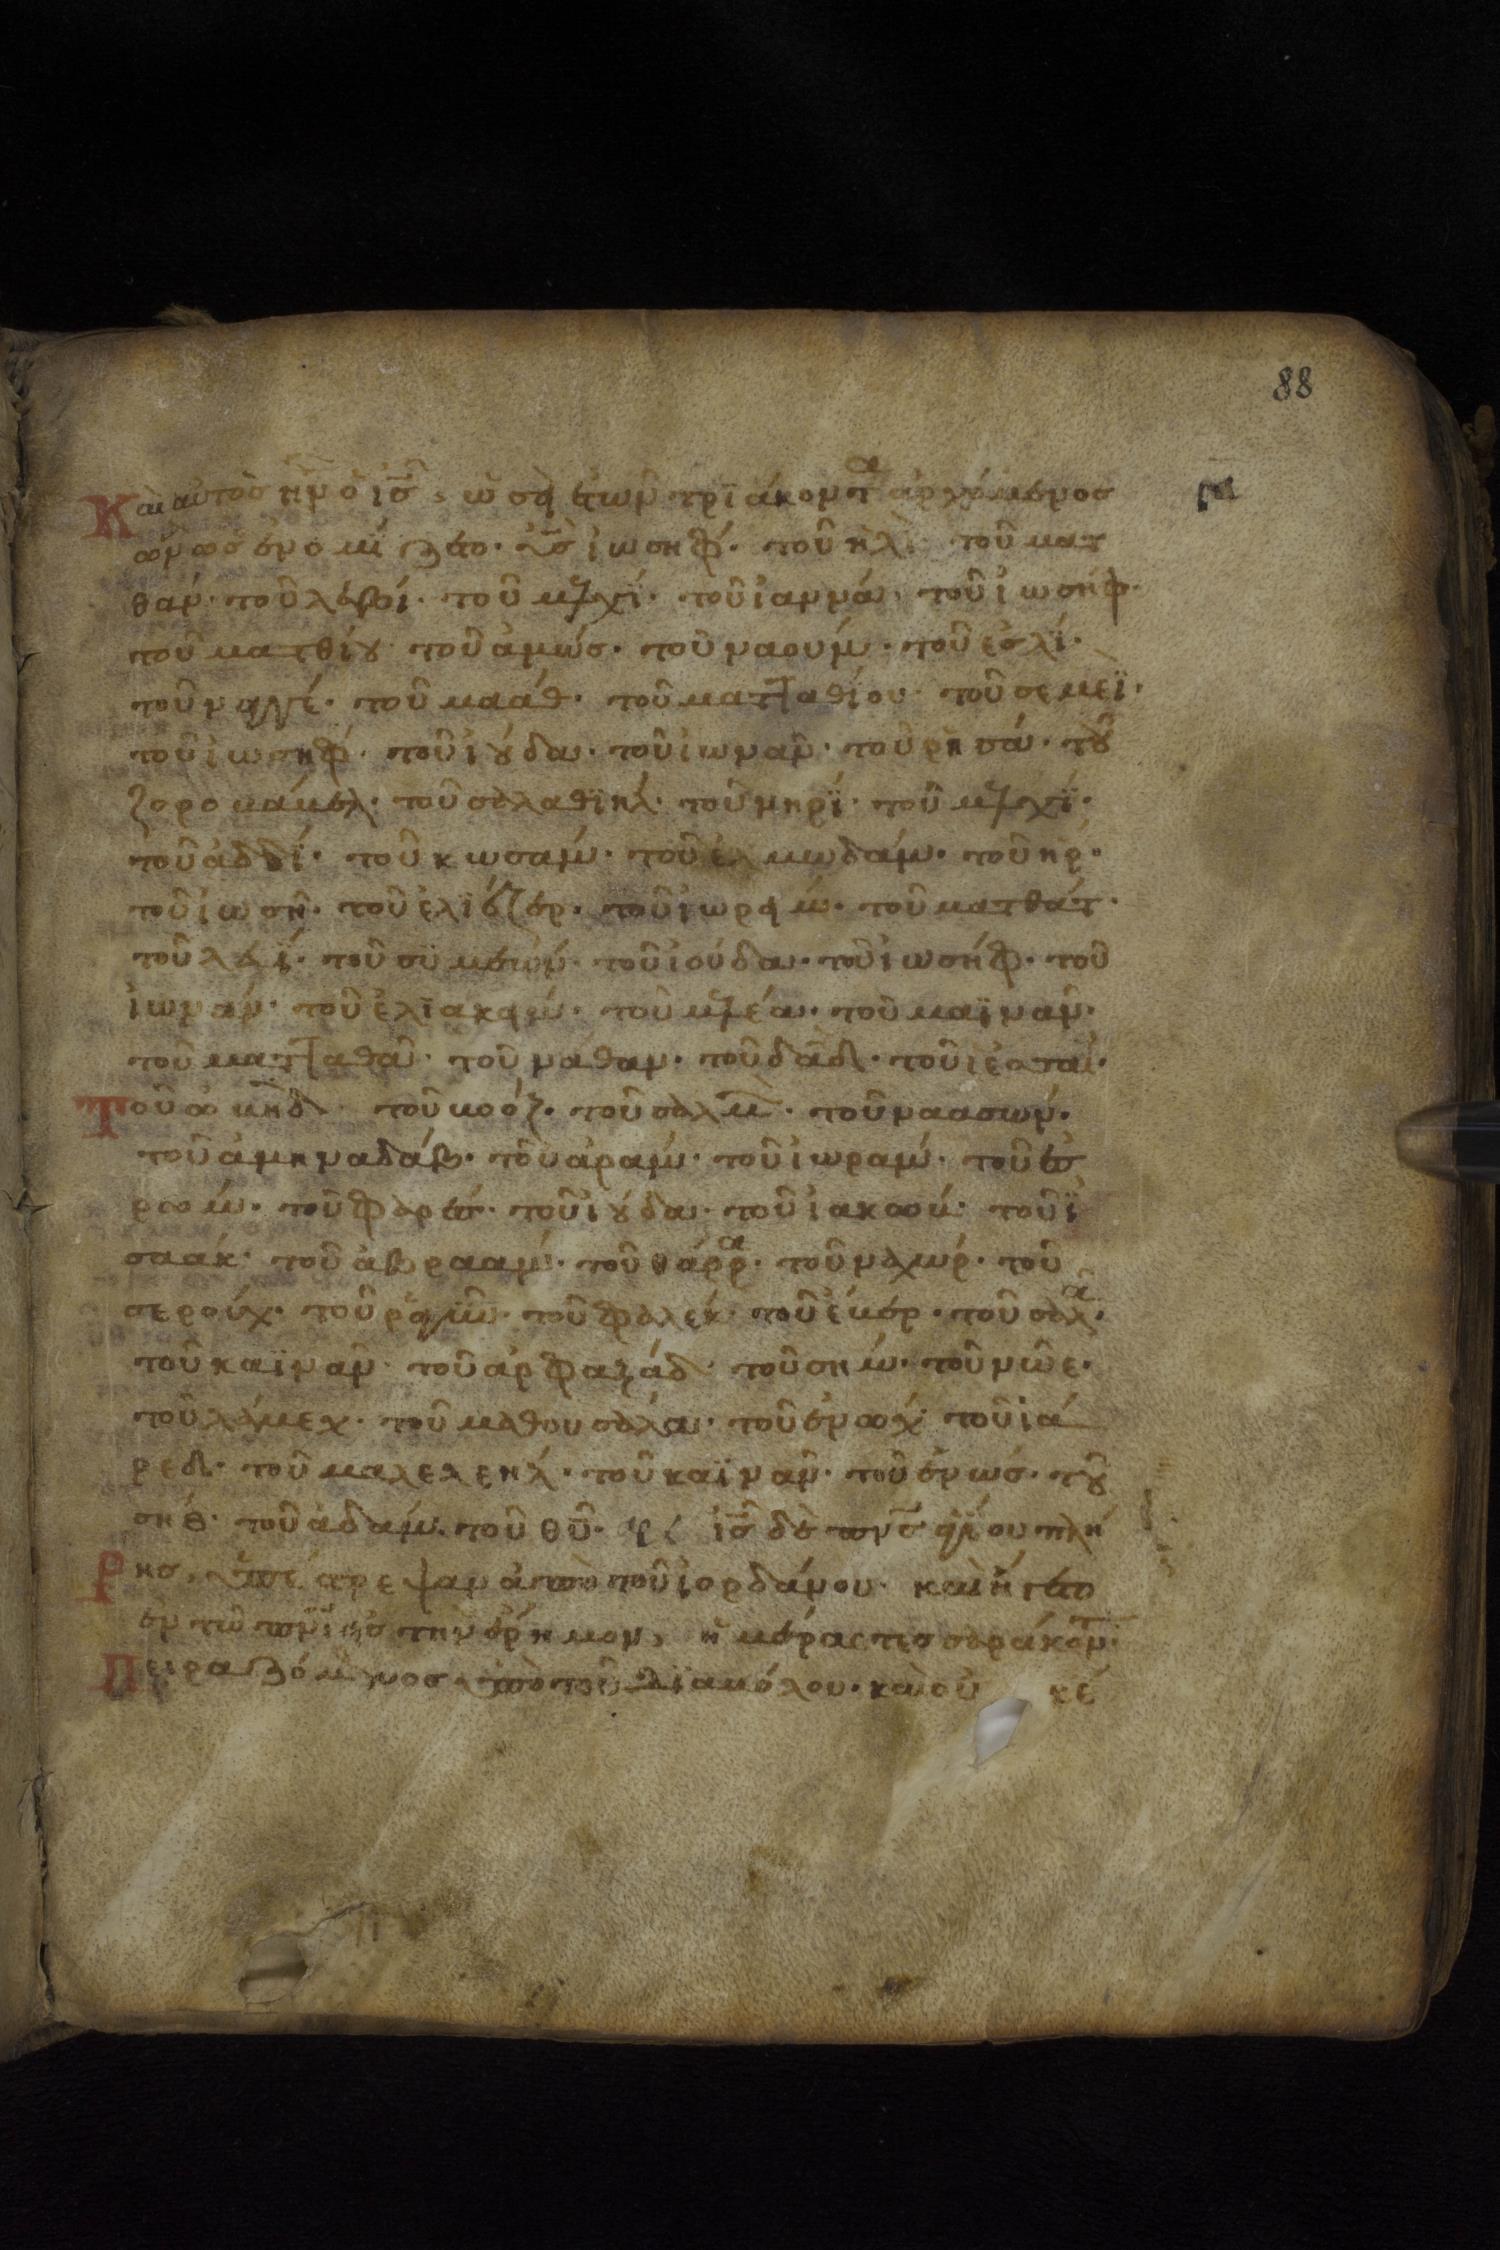 88
Καὶ αὐτὸσ ἦν ὁ ἰσ, ὡσεὶ ἐτῶν τριάκοντα ἀρχόμενοσ
ὢν ὡσ ἐνομίζετο· υσ ἰωσήφ· τοῦ ηλὶ· τοῦ ματ
θάν· τοῦ λευί· τοῦ μελχί· τοῦ ἰαννά· τοῦ ἰωσήφ·
τοῦ ματθίου· τοῦ ἀμώσ· τοῦ ναούμ· τοῦ εσλί·
τοῦ ναγγέ· τοῦ μαάθ· τοῦ ματταθίου· τοῦ σεμεῒ·
τοῦ ἰωσήφ· τοῦ ἰούδα· τοῦ ἰωνᾶν· τοῦ ρησά· τοῦ
ζοροβάβελ· τοῦ σαλαθϊήλ· τοῦ νηρί· τοῦ μελχί·
τοῦ ἀδδί· τοῦ κωσάμ· τοῦ ἐλμωδάμ· τοῦ ηρ·
τοῦ ἰωσῆ· τοῦ ἐλιέζερ· τοῦ ἰωρείμ· τοῦ ματθάτ·
τοῦ λευΐ· τοῦ συμεών· τοῦ ἰούδα· τοῦ ἰωσήφ· τοῦ
ἰωνάν· τοῦ ἐλϊακείμ· τοῦ μελέα· τοῦ μαϊνάν·
τοῦ ματταθᾶ· τοῦ νάθαν· τοῦ δαδ· τοῦ ἰεσσαί·
Τοῦ ὠβηδ· τοῦ βοόζ· τοῦ σαλμ· τοῦ ναασών·
τοῦ ἀμηναδάβ· τοῦ ἀράμ· τοῦ ἰωράμ· τοῦ ἐσ
ρώμ· τοῦ φαρέσ· τοῦ ἰούδα· τοῦ ἰακώβ· τοῦ ἰ
σαάκ· τοῦ ἀβραάμ· τοῦ θάρρα· τοῦ ναχώρ· τοῦ
σερούχ· τοῦ ραγαῦ· τοῦ φαλέκ· τοῦ ἔβερ· τοῦ σαλᾶ·
τοῦ καϊνᾶν· τοῦ ἀρφαξάδ· τοῦ σήμ· τοῦ νῶε·
τοῦ λάμεχ· τοῦ μαθουσάλα· τοῦ ἐνώχ· τοῦ ἰά
ρεδ· τοῦ μαλελεήλ· τοῦ καϊνᾶν· τοῦ ἐνώσ· τοῦ
σήθ· τοῦ ἀδάμ· τοῦ θῦ· ἰσ δὲ πνσ ἁγίου πλή
Ρησ, ὑπέστρεψαν ἀπὸ τοῦ ἰορδάνου· καὶ ἤγετο
ἐν τῶ πνι εἰσ τὴν ἔρημον, ἡμέρασ τεσσαράκοντ·
Πειραζόμενοσ ὑπὸ τοῦ διαβόλου· καὶ οὐ κέ